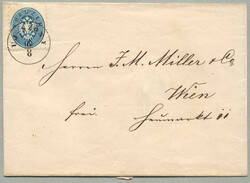 6
8
Herren J. M. Miller & Co
Wien
frei.
Heumarkt 11